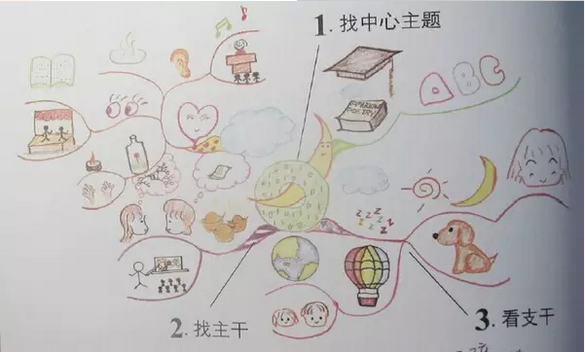 1. 找中心主题
ABC
z z z z z z
2. 找主干
3. 看支干